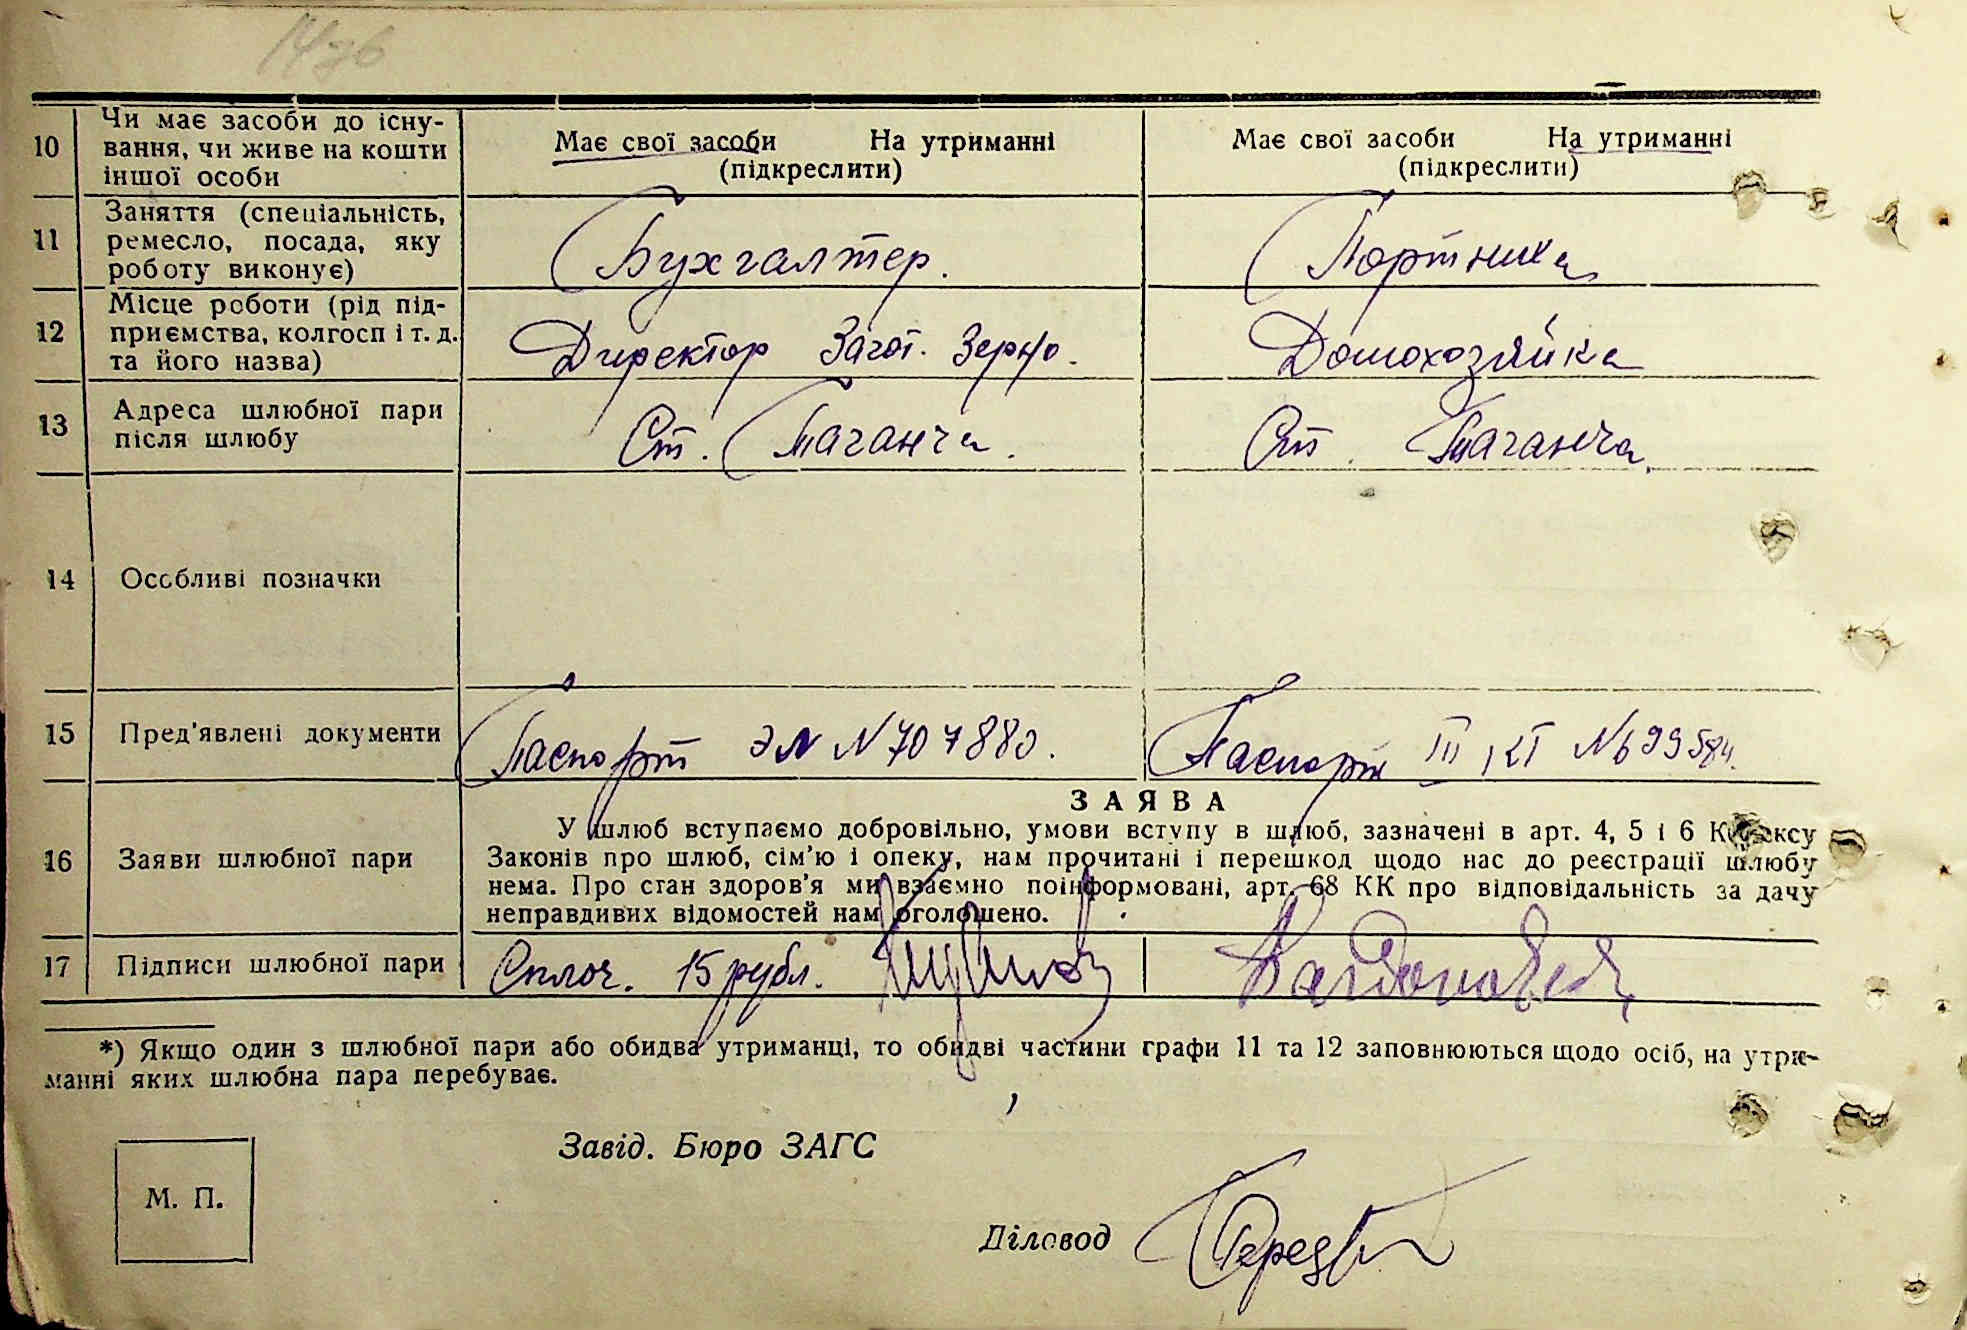 10 Чи має засоби до існу-
вання, чи живе на кошти
іншої особи
Має свої засоби На утриманні
(підкреслити)
Має свої засоби На утриманні
(підкреслити)
11 Заняття (спеціальність,
ремесло, посада, яку
роботу виконує)
Бухгалтер.
Портниха
12 Місце роботи (рід під-
приємства, колгосп і т. д.
та його назва)
Директор Загот. Зерно.
Домохозяйка
13 Адреса шлюбної пари
після шлюбу
Ст. Таганча.
Ст. Таганча.
14 Особливі позначки
15 Пред'явлені документи
Паспорт ЭМ N 707880.
Паспорт III КТ № 699584.
16 Заяви шлюбної пари
ЗАЯВА
У шлюб вступаємо добровільно, умови вступу в шлюб, зазначені в арт. 4, 5 і 6 Кодексу
Законів про шлюб, сім'ю і опеку, нам прочитані і перешкод щодо нас до реєстрації шлюбу
нема. Про стан здоров'я ми взаємно поінформовані, арт. 68 КК про відповідальність за дачу
неправдивих відомостей нам оголошено.
17 Підписи шлюбної пари
Сплоч. 15 рубл.
*) Якщо один з шлюбної пари або обидва утриманці, то обидві частини графи 11 та 12 заповнюються щодо осіб, на утри-
манні яких шлюбна пара перебуває.
Завід. Бюро ЗАГС
М. П.
Діловод